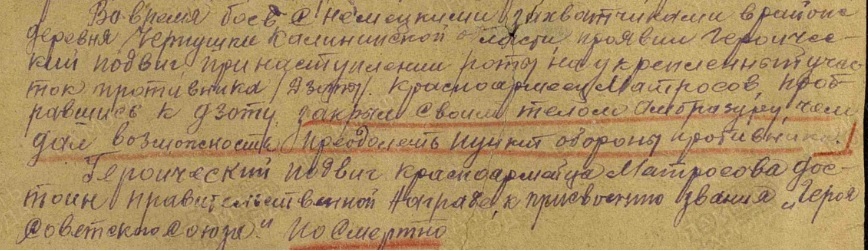 Во время боев с немецкими захватчиками в районе
деревня Чернушки Калининской области, проявил Героичес-
кий подвиг при наступлении роты, на укрепленный учас-
ток противника Дзоты. Красноармеец Матросов, проб-
равшись к дзоту, закрыл своим телом амбразуру, чем
дал возможность преодолеть пункт обороны противника.
Героический подвиг красноармейца Матросова дос-
тоин правительственной награде, к присвоению звания "Героя
Советского Союза" посмертно